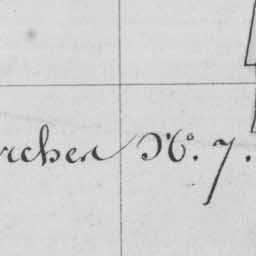 rchen No. 7.